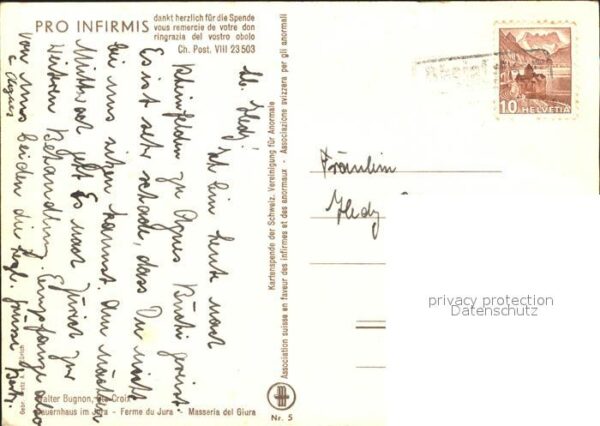 PRO INFIRMIS
dankt herzlich für die Spende
vous remercie de votre don
ringrazia del vostro obolo
Ch. Post. VIII 23 503
lb. Hedy! Ich bin heute nach
Rheinfelden zu Agnes gereist
Es ist sehr schade, dass Du nicht
bei uns sitzen kannst. Am nächsten
Mittwoch geht Es nach Zürich zur
weiteren Behandlung. Empfange also
von uns beiden die herzl. Grüsse
& Agnes
Walter Bugnon, Ste-Croix
Bauernhaus im Jura - Ferme du Jura - Masseria del Giura
Kartenspende der Schweiz. Vereinigung für Anormale
Association suisse en faveur des infirmes et des anormaux - Associazione svizzera per gli anormali
Nr. 5
10 HELVETIA
Fräulein
Hedy
privacy protection
Datenschutz